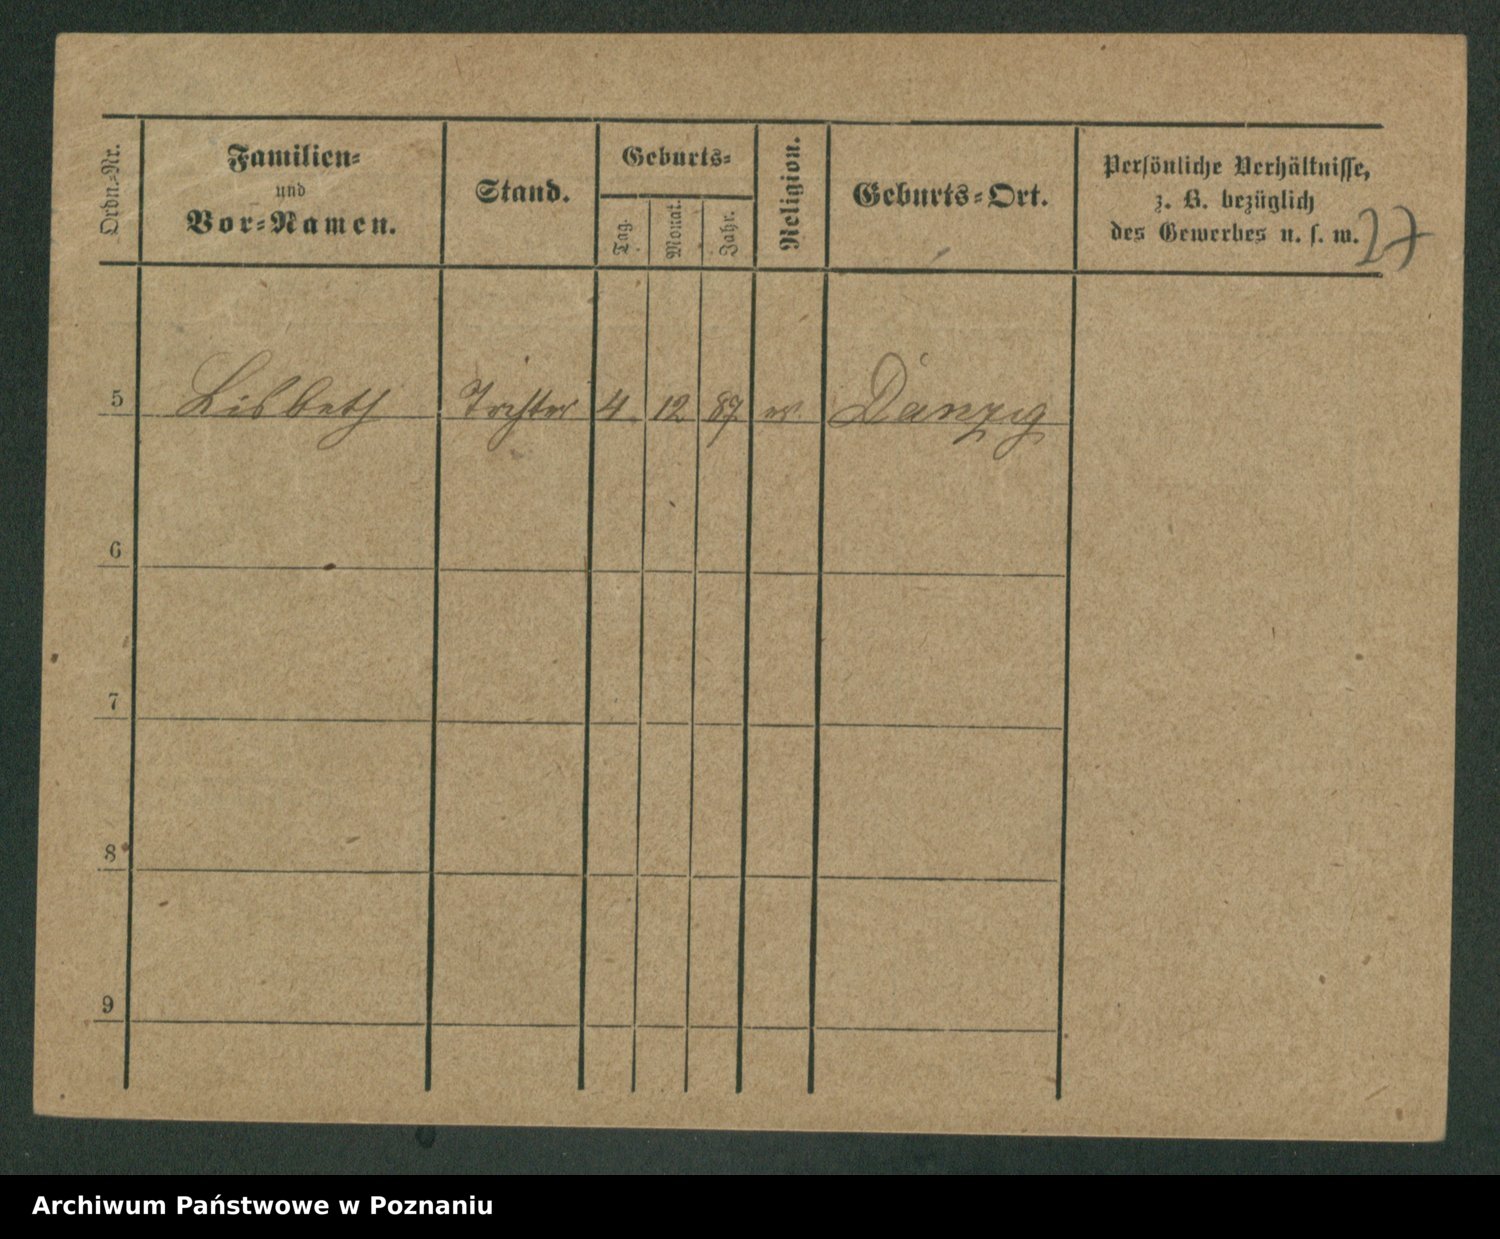 Ordn.-Nr.
Familien-
und
Vor-Namen.
Stand.
Geburts-
Tag.
Monat.
Jahr.
Religion.
Geburts-Ort.
Persönliche Verhältnisse,
z. B. bezüglich
des Gewerbes u. s. w.
27
5 Lisbeth Tochter 4 12 87 ev. Danzig
6
7
8
9
Archiwum Państwowe w Poznaniu